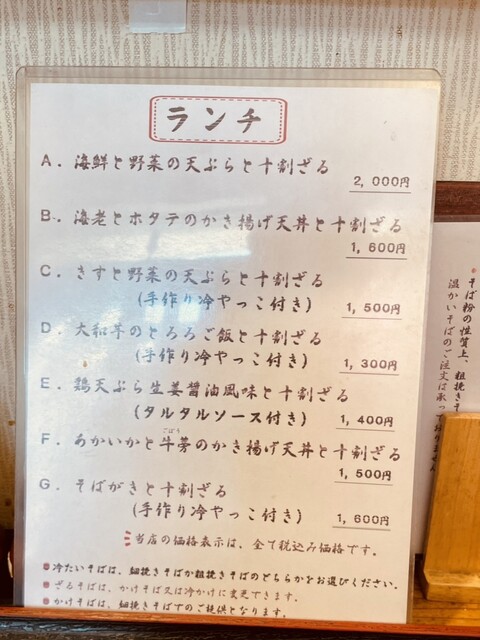 ランチ
A. 海鮮と野菜の天ぷらと十割ざる
2,000円
B. 海老とホタテのかき揚げ天丼と十割ざる
1,600円
C. きすと野菜の天ぷらと十割ざる
(手作り冷やっこ付き) 1,500円
D. 大和芋のとろろご飯と十割ざる
(手作り冷やっこ付き) 1,300円
E. 鶏天ぷら生姜醤油風味と十割ざる
(タルタルソース付き) 1,400円
ごぼう
F. あかいかと牛蒡のかき揚げ天丼と十割ざる
1,500円
G. そばがきと十割ざる
(手作り冷やっこ付き) 1,600円
当店の価格表示は、全て税込み価格です。
●冷たいそばは、細挽きそばか粗挽きそばのどちらかをお選びください。
●ざるそばは、かけそば又は冷かけに変更できます。
●かけそばは、細挽きそばでのご提供となります。
●そば粉の性質上、粗挽きそ
温かいそばのご注文は承っておりません